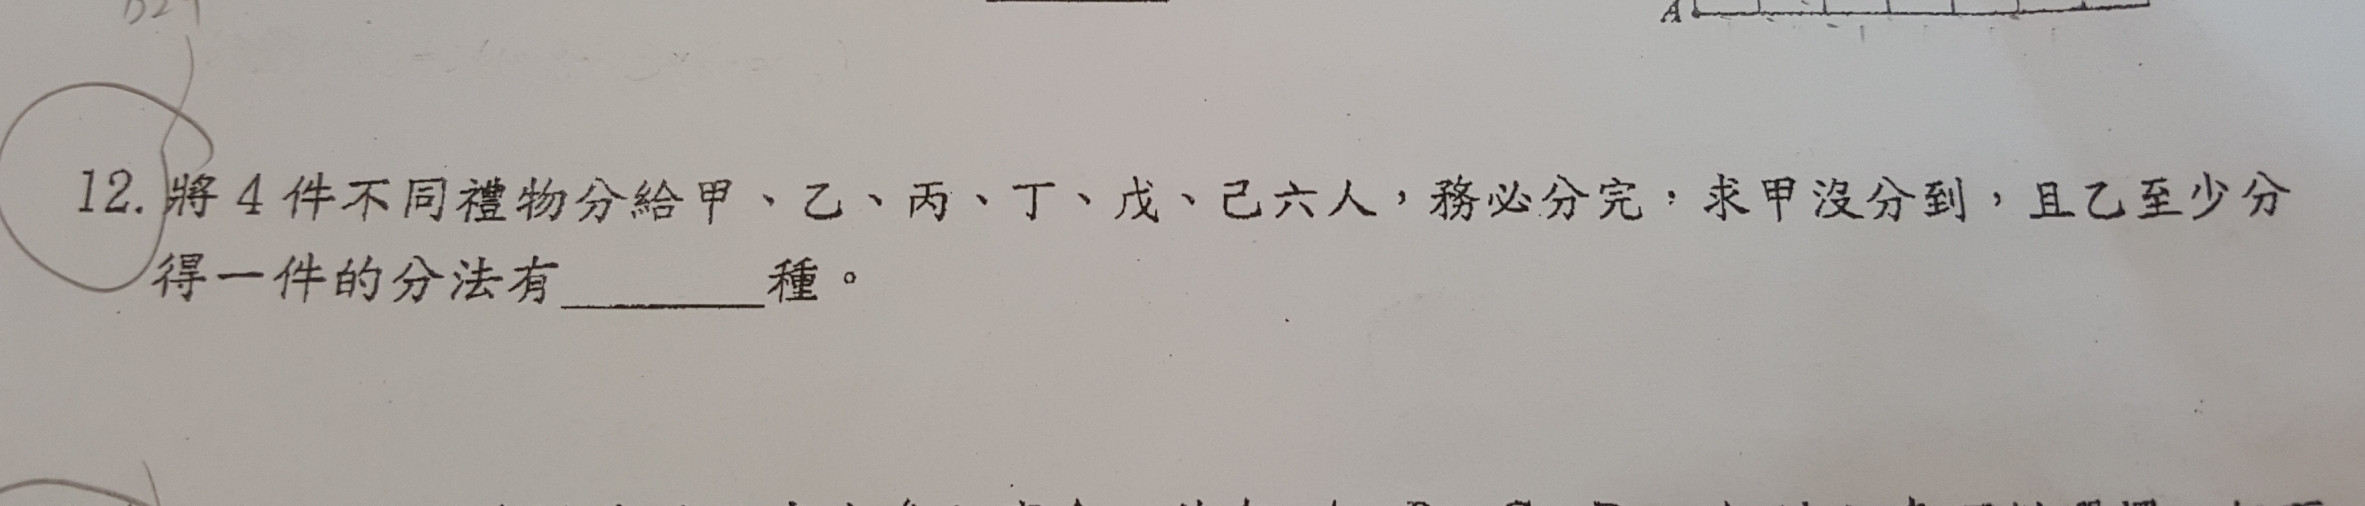 A
12.將4件不同禮物分給甲、乙、丙、丁、戊、己六人，務必分完，求甲沒分到，且乙至少分
得一件的分法有________種。